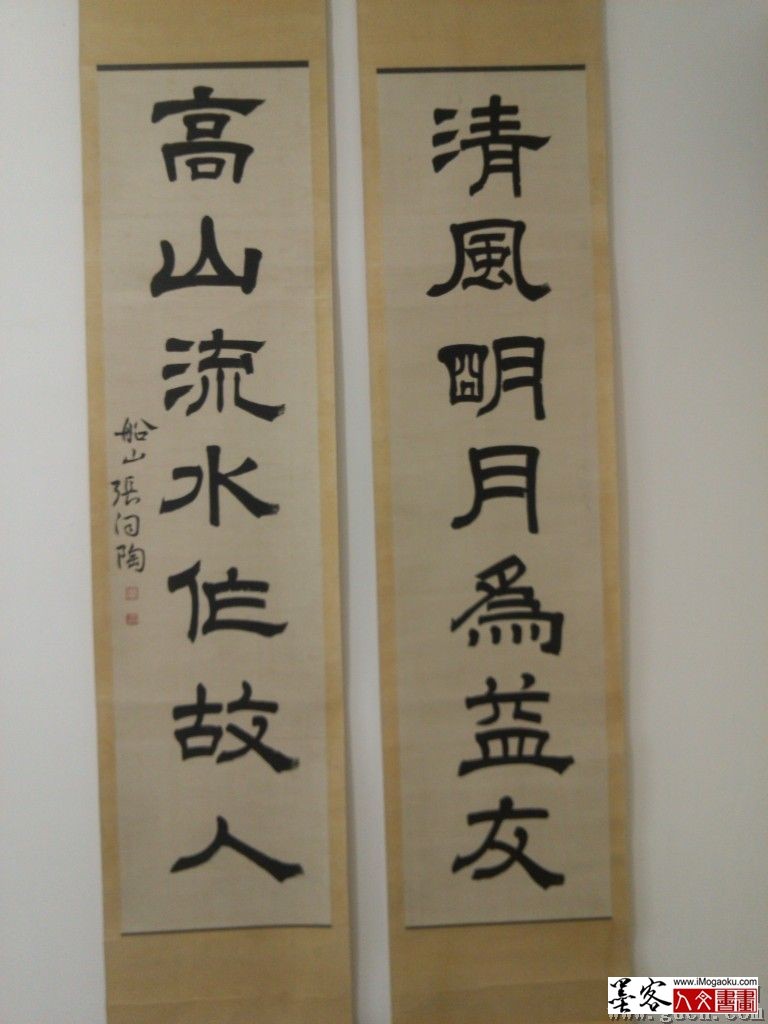 清風明月為益友
高山流水作故人
船山張問陶
墨客
www.iMogaoku.com
人文書畫